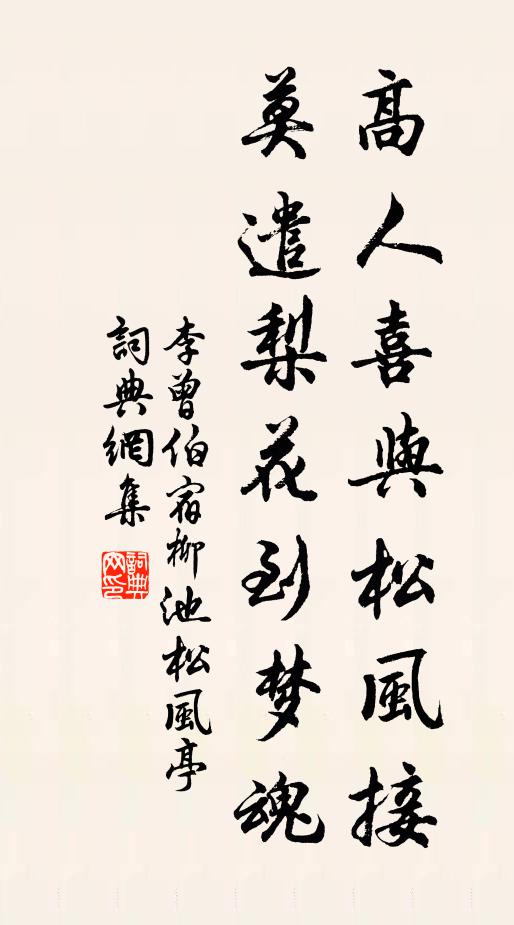 高人喜與松風接
莫遣梨花到梦魂
李曾伯宿柳池松風亭
詞典網集
詞典網印